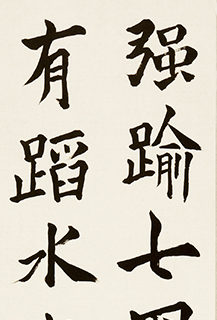 强踰七
有蹈水